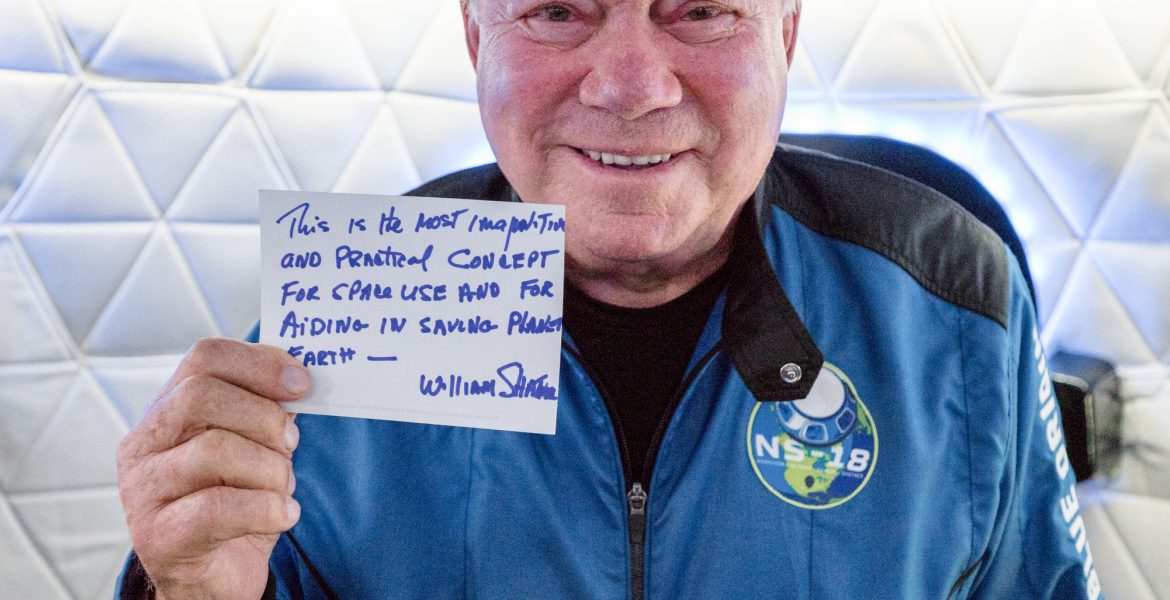 This is the MOST
AND PRACTICAL CONCEPT
FOR SPACE USE AND FOR
AIDING IN SAVING PLANET
EARTH —
William Shatner
NS-18
BLUE ORIGIN